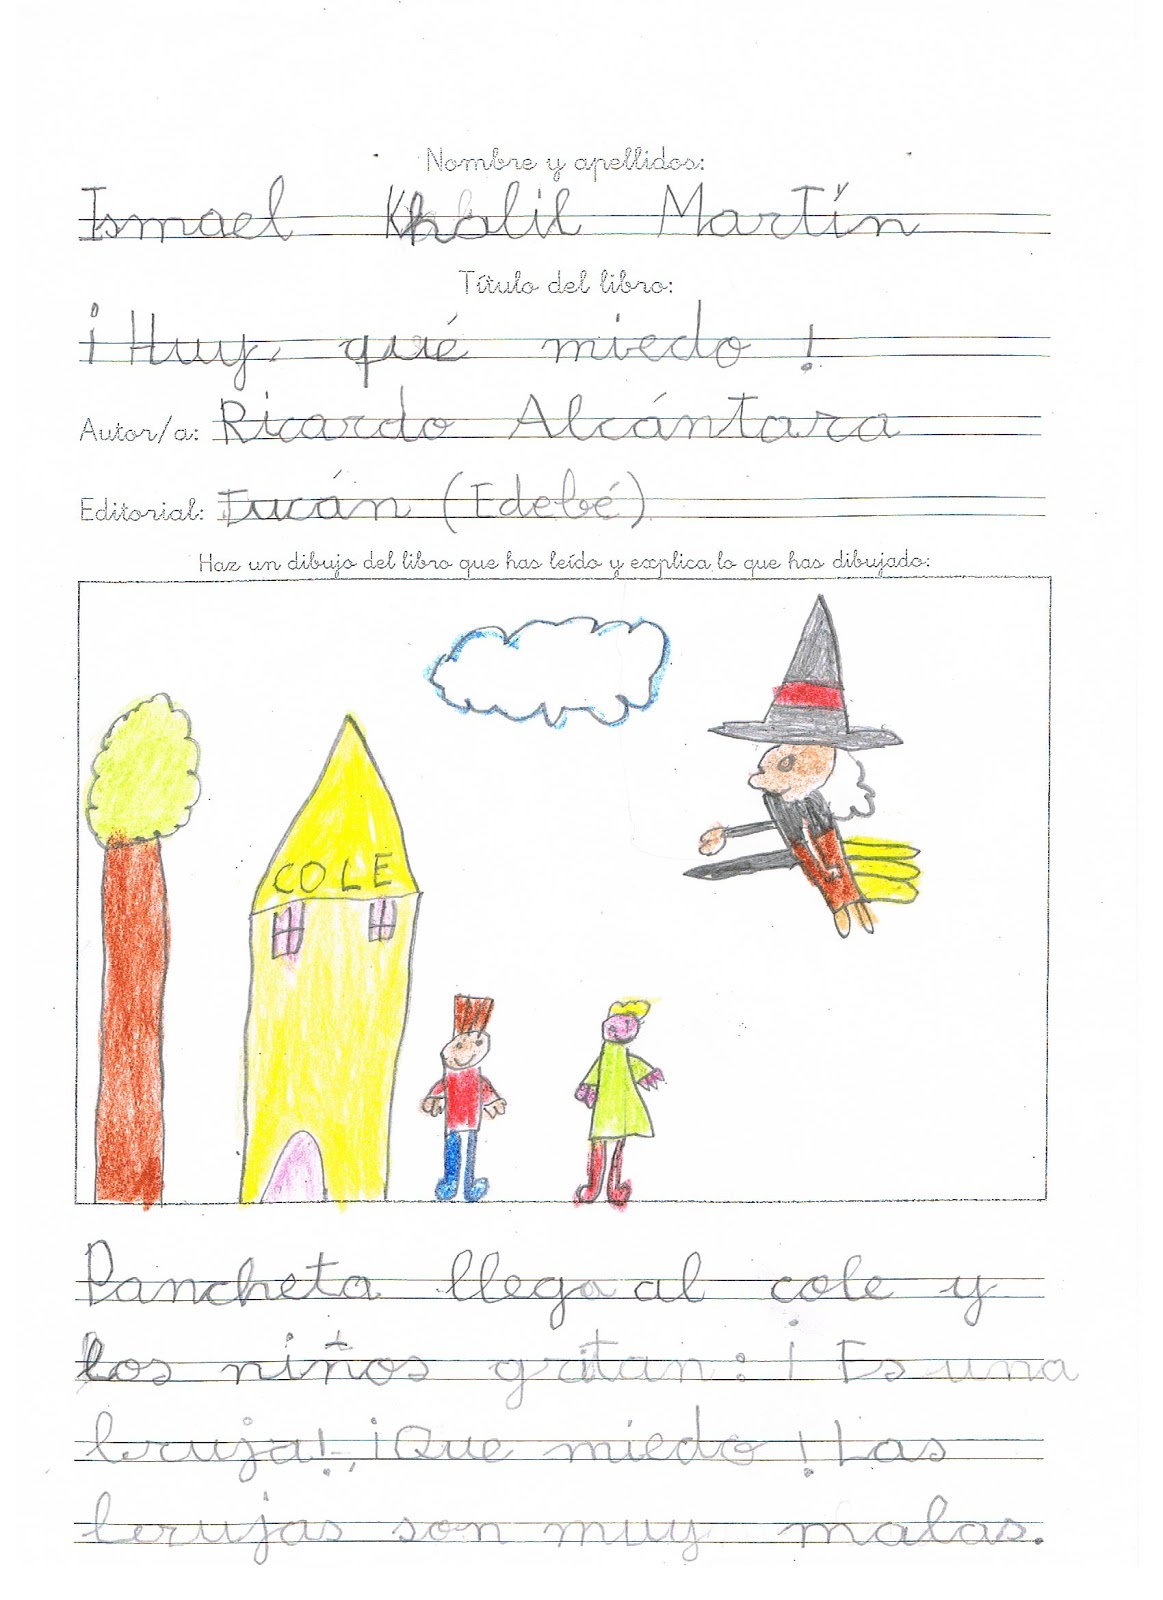 Nombre y apellidos:
Ismael Khalil Martín
Título del libro:
¡Huy, qué miedo!
Autor/a: Ricardo Alcántara
Editorial: Tucán (Edebé)
Haz un dibujo del libro que has leído y explica lo que has dibujado:
COLE
Pancheta llega al cole y
los niños gritan: ¡Es una
bruja!, ¡Que miedo! Las
brujas son muy malas.